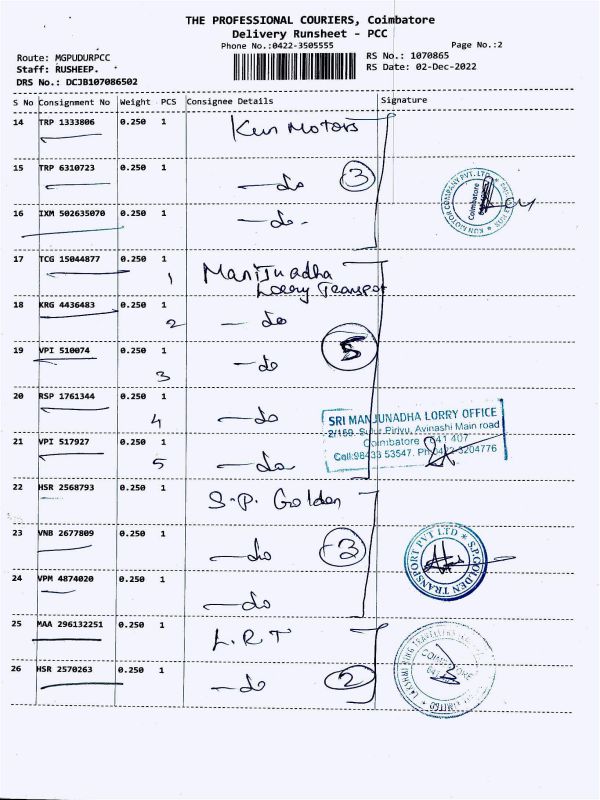 THE PROFESSIONAL COURIERS, Coimbatore
Delivery Runsheet - PCC
Phone No.:0422-3505555 Page No.:2
Route: MGPUDURPCC RS No.: 1070865
Staff: RUSHEEP. RS Date: 02-Dec-2022
DRS No.: DCJB107086502
S No Consignment No Weight PCS Consignee Details Signature
14 TRP 1333806 0.250 1 Kun Motors
15 TRP 6310723 0.250 1 — do 3
16 IXM 502635070 0.250 1 — do -
KUN MOTOR COMPANY PVT. LTD
Coimbatore
17 TCG 15044877 0.250 1 1 Manjunadha
Lorry Transpot
18 KRG 4436483 0.250 1 2 — do
19 VPI 510074 0.250 1 3 — do 5
20 RSP 1761344 0.250 1 4 — do
21 VPI 517927 0.250 1 5 — do
SRI MANJUNADHA LORRY OFFICE
2/159, Sulur Pirivu, Avinashi Main road
Coimbatore 641 407
Cell:98433 53547. Ph:0422-3204776
22 HSR 2568793 0.250 1 S.P. Golden
23 VNB 2677809 0.250 1 — do 3
24 VPM 4874020 0.250 1 — do
S.P.GOLDEN TRANSPORT PVT LTD
25 MAA 296132251 0.250 1 L.R.T
26 HSR 2570263 0.250 1 — do 2
COIMBATORE